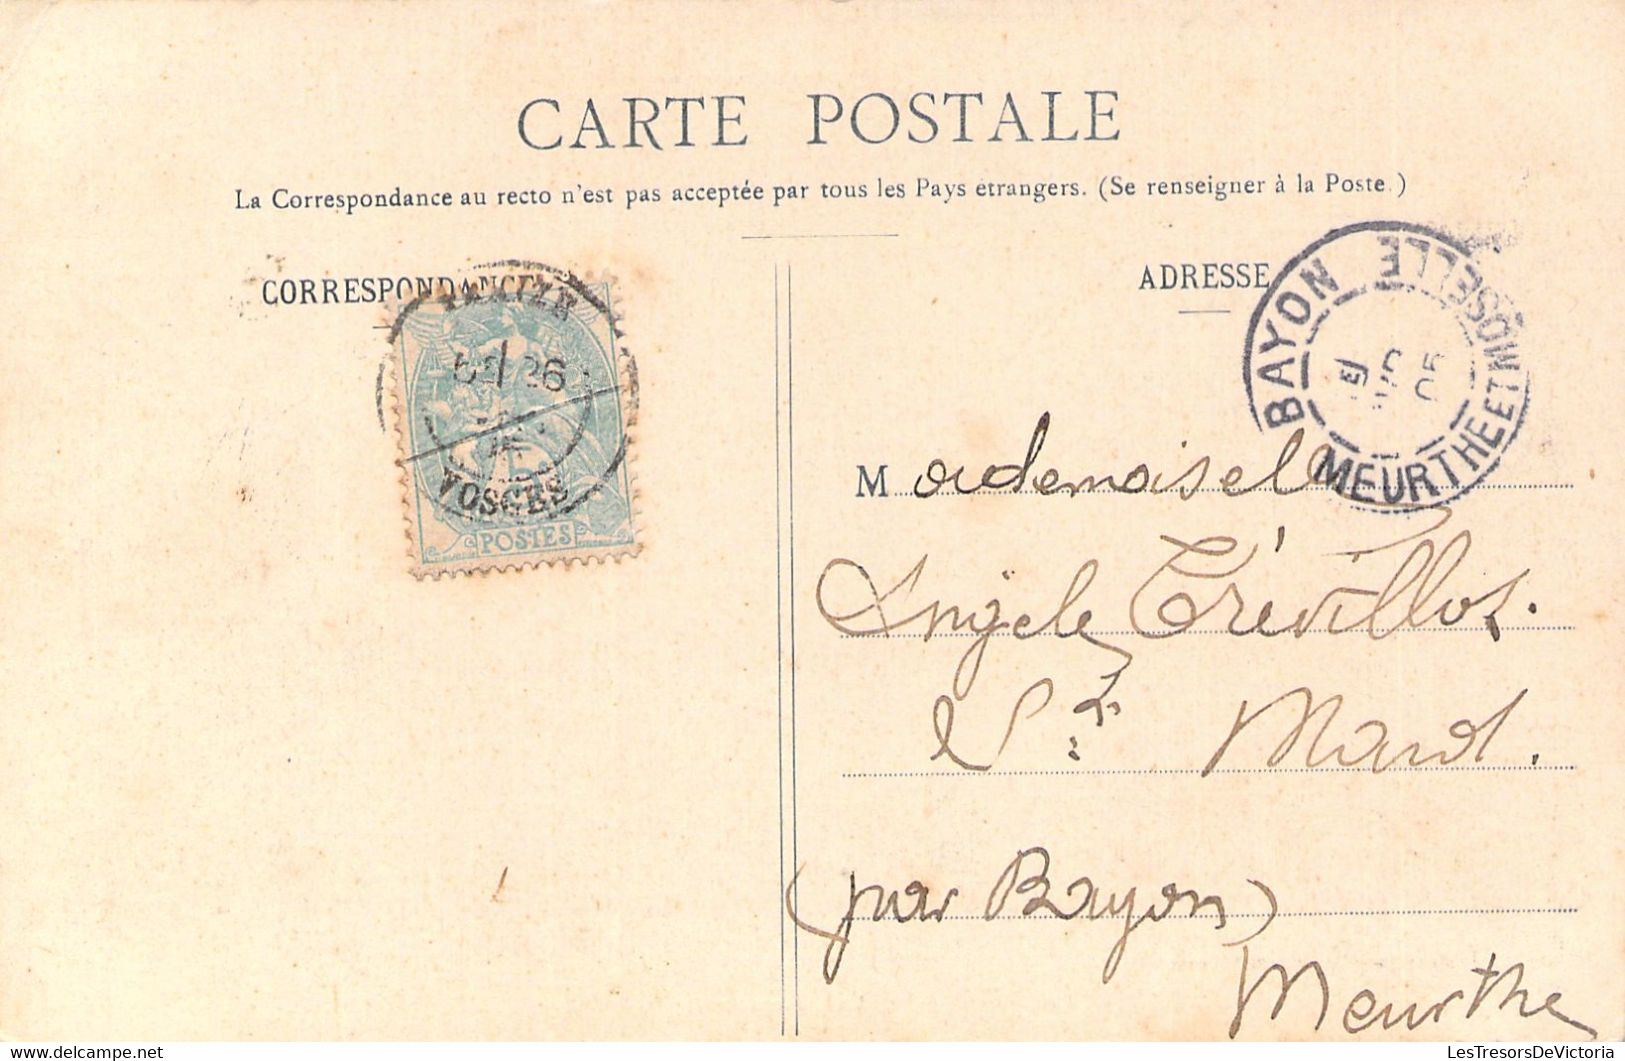 CARTE POSTALE
La Correspondance au recto n'est pas acceptée par tous les Pays étrangers. (Se renseigner à la Poste.)
CORRESPONDANCE
ADRESSE
BAYON MEURTHE ET MOSELLE
VOSGES
POSTES
Mademoiselle
Angèle Trévillot.
St Mard.
(par Bayon)
Meurthe
LesTresorsDeVictoria